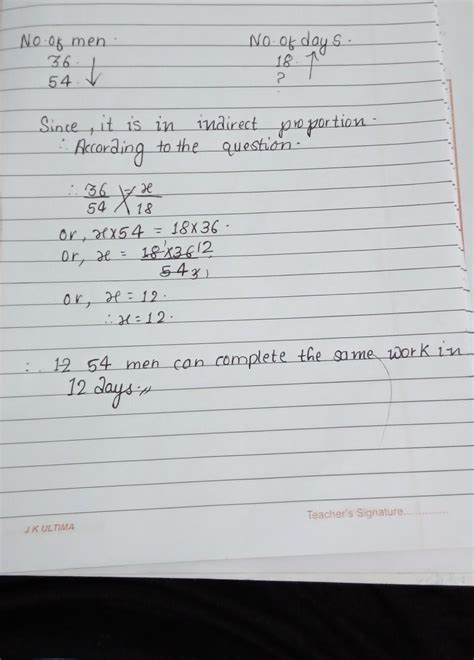 No. of men. No. of days.
36. ↓ 18. ↑
54. ?
Since, it is in indirect proportion.
∴ According to the question.
∴ 36/54 = x/18
or, x×54 = 18×36.
or, x = 18¹×36 12 / 54 3 1
or, x = 12.
∴ x = 12.
∴ 12 54 men can complete the same work in
12 days.,,
Teacher's Signature..............
J.K ULTIMA